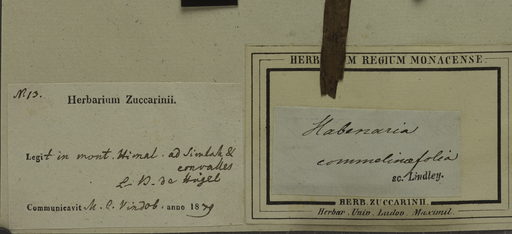 No 13.
Herbarium Zuccarinii.
Legit in mont. Himal. ad Simlah &
convalles
L. B. de Hügel
Communicavit M. C. Vindob. anno 1839
HERBARIUM REGIUM MONACENSE.
Habenaria
commelinæfolia
sc. Lindley.
HERB. ZUCCARINII.
Herbar. Univ. Ludov. Maximil.